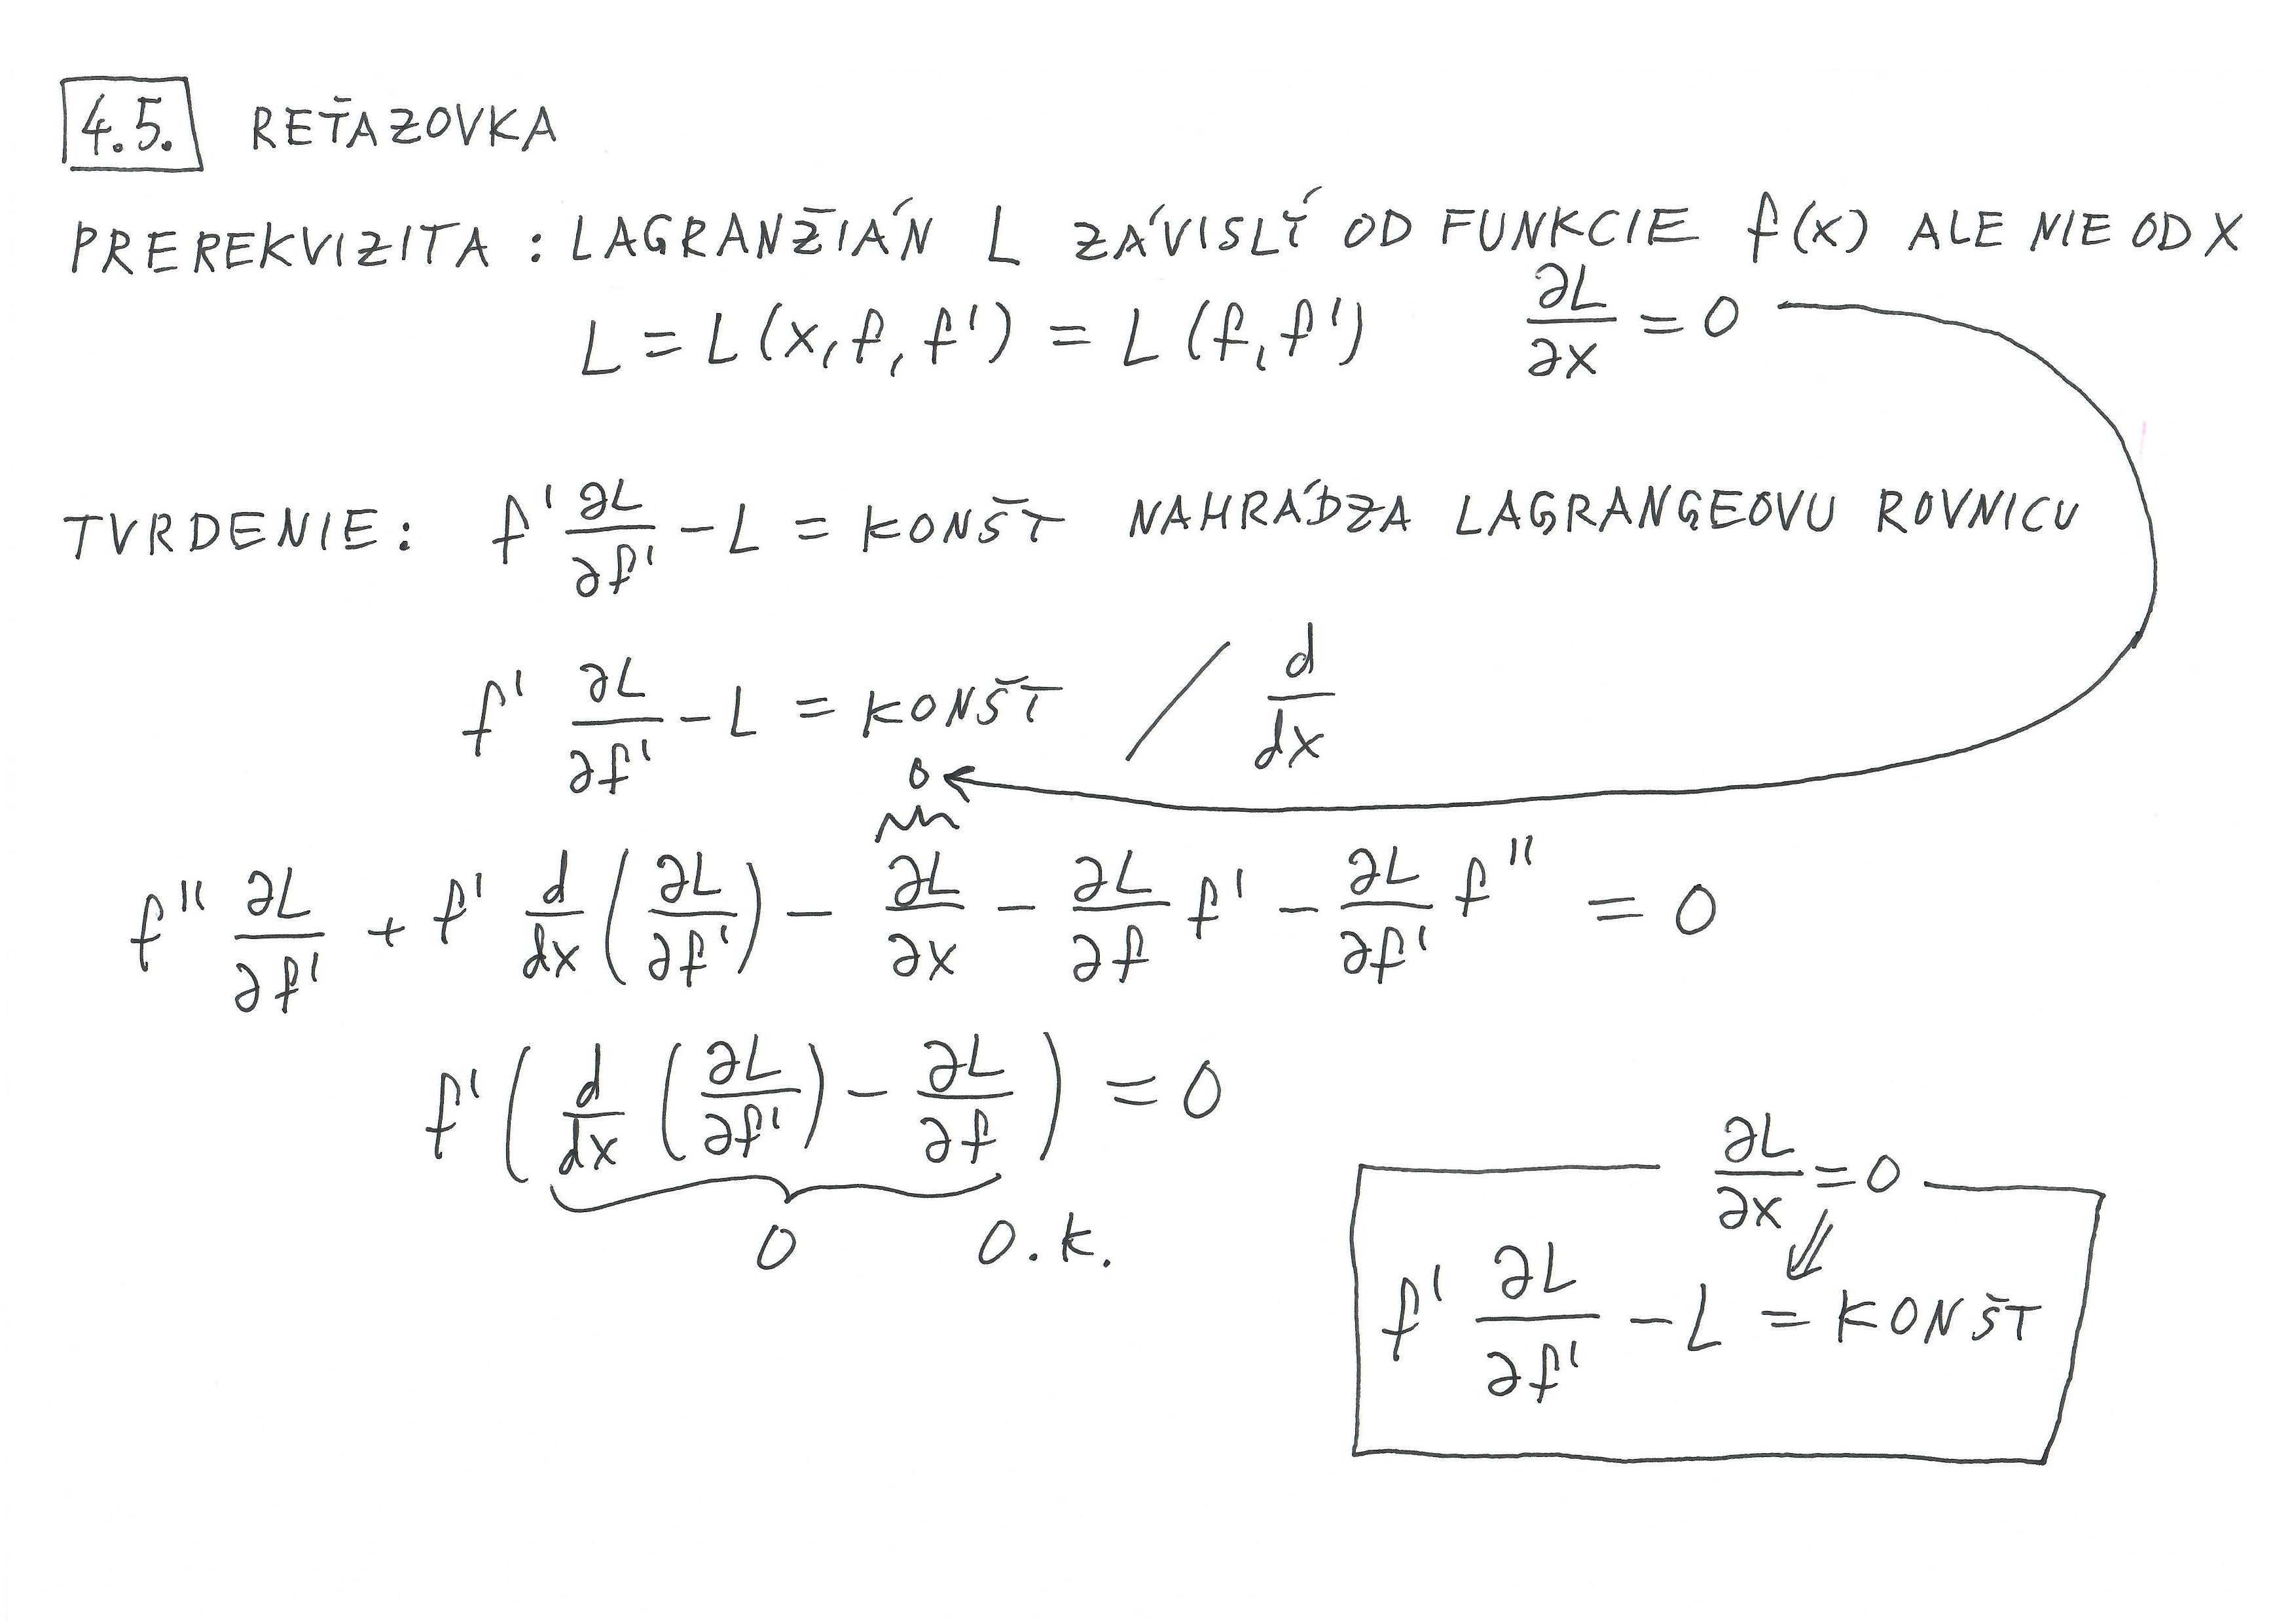 4.5. REŤAZOVKA
PREREKVIZITA : LAGRANŽIÁN L ZÁVISLÝ OD FUNKCIE f(x) ALE NIE OD X
L = L(x, f, f') = L(f, f') ∂L/∂x = 0
TVRDENIE: f' ∂L/∂f' - L = KONŠT NAHRÁDZA LAGRANGEOVU ROVNICU
f' ∂L/∂f' - L = KONŠT / d/dx
0
f'' ∂L/∂f' + f' d/dx (∂L/∂f') - ∂L/∂x - ∂L/∂f f' - ∂L/∂f' f'' = 0
f' ( d/dx (∂L/∂f') - ∂L/∂f ) = 0
0 O.K.
∂L/∂x = 0
⇓
f' ∂L/∂f' - L = KONŠT